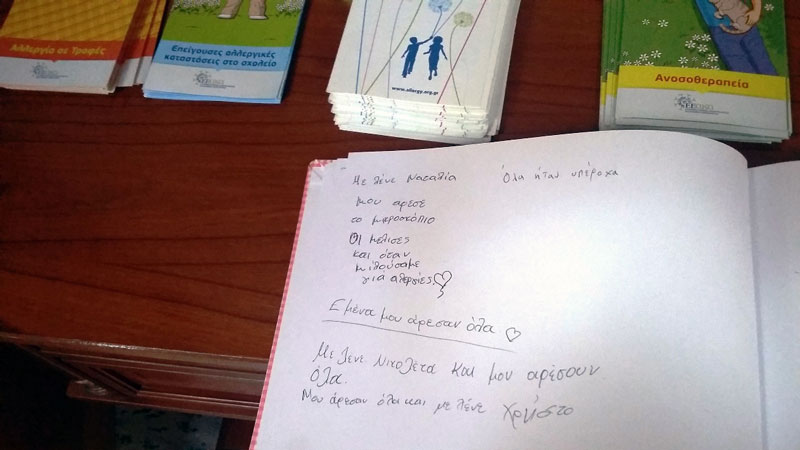 Αλλεργία σε Τροφές
Επείγουσες αλλεργικές
καταστάσεις στο σχολείο
www.allergy.org.gr
Ανοσοθεραπεία
Με λένε Ναταλία
μου αρεσε
το μικροσκόπιο
Οι μελισες
και όταν
μιλούσαμε
για αλεργιές
Όλα ήταν υπέροχα
Εμένα μου άρεσαν όλα
Με λενε Νικολέτα και μου αρέσουν
όλα.
Μου άρεσαν όλα και με λένε Χρήστο